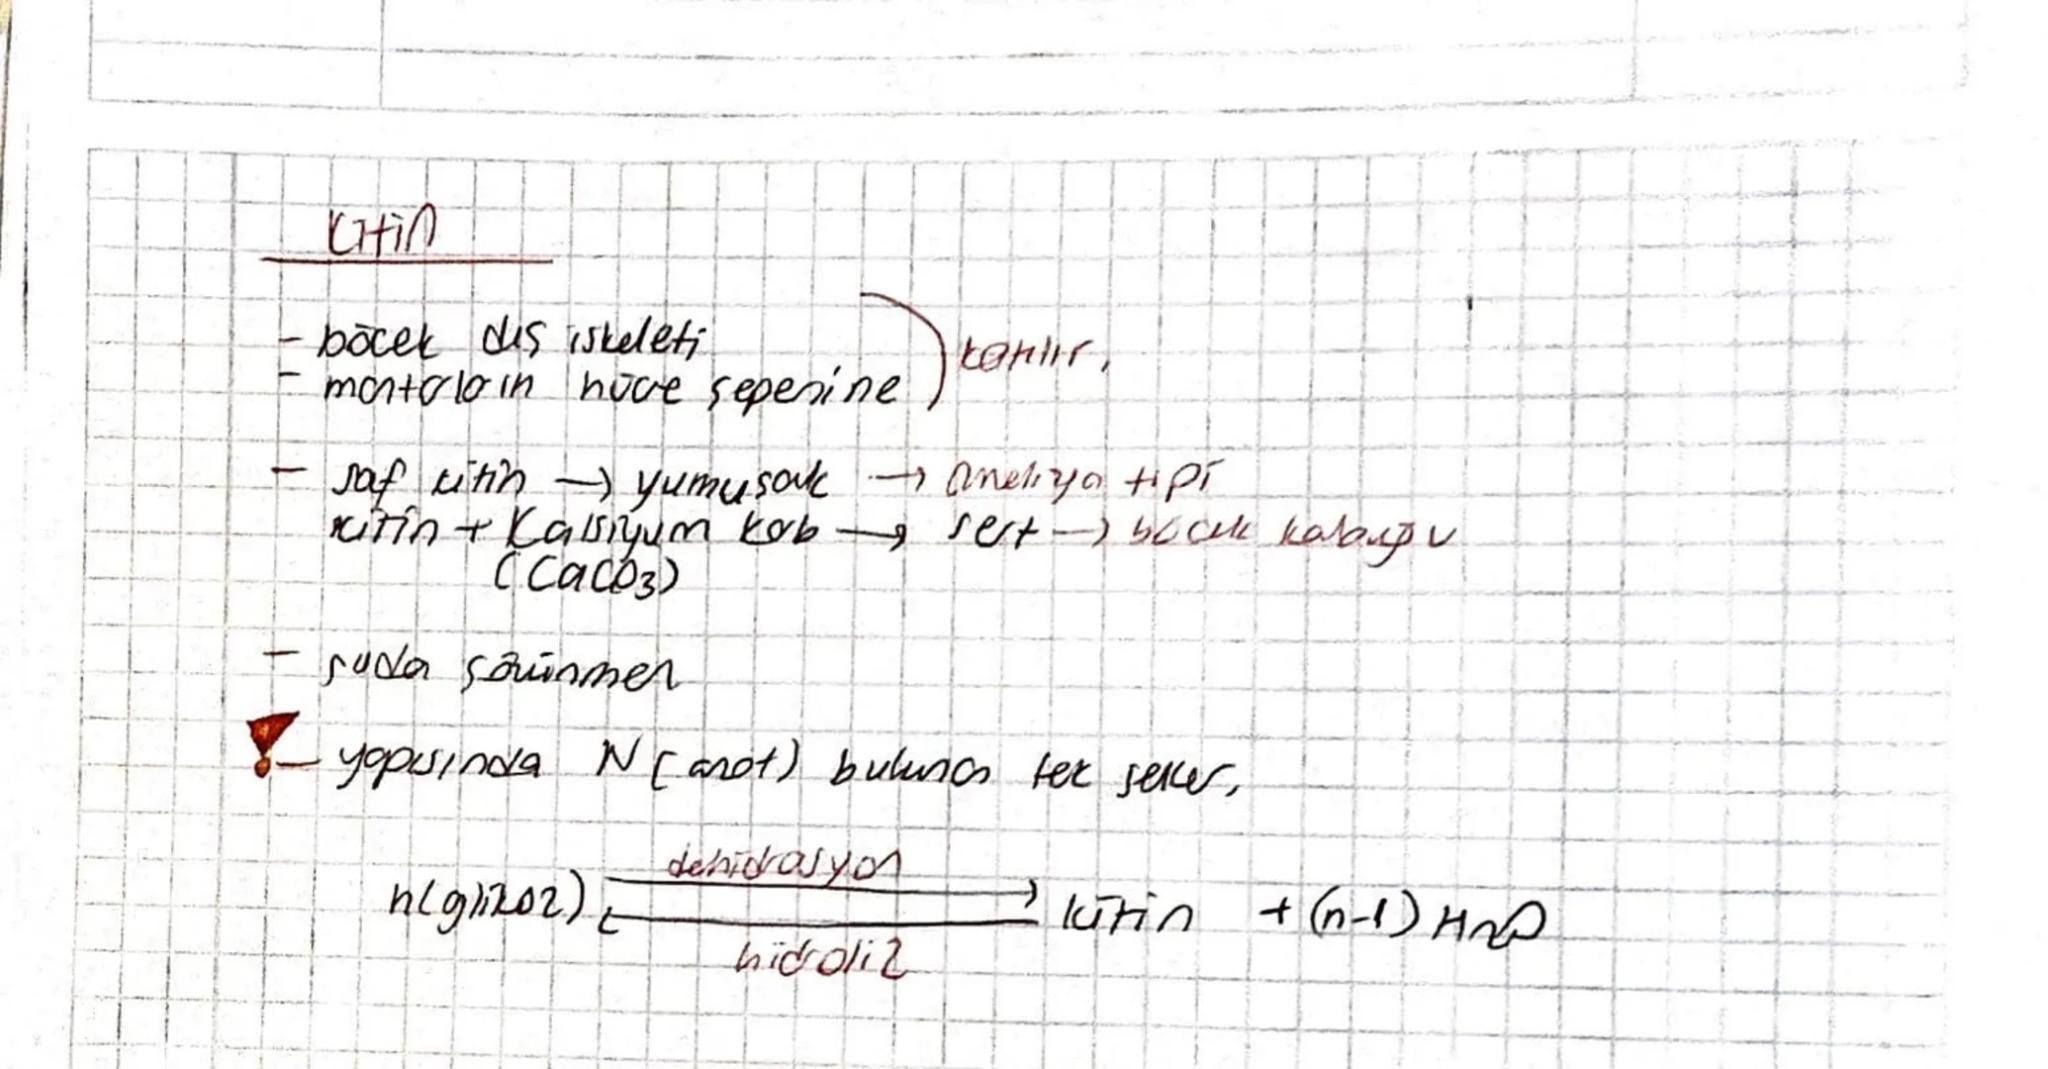 Kitin
- böcek dış iskeleti
- mantarların hücre çeperine
katılır.
- saf kitin → yumuşak → ameliyat ipi
kitin + Kalsiyum karb → sert → böcek kabuğu
(CaCO3)
- suda çözünmez
! - yapısında N (azot) bulunan tek şeker.
dehidrasyon
n(glikoz) ⇄ kitin + (n-1) H2O
hidroliz